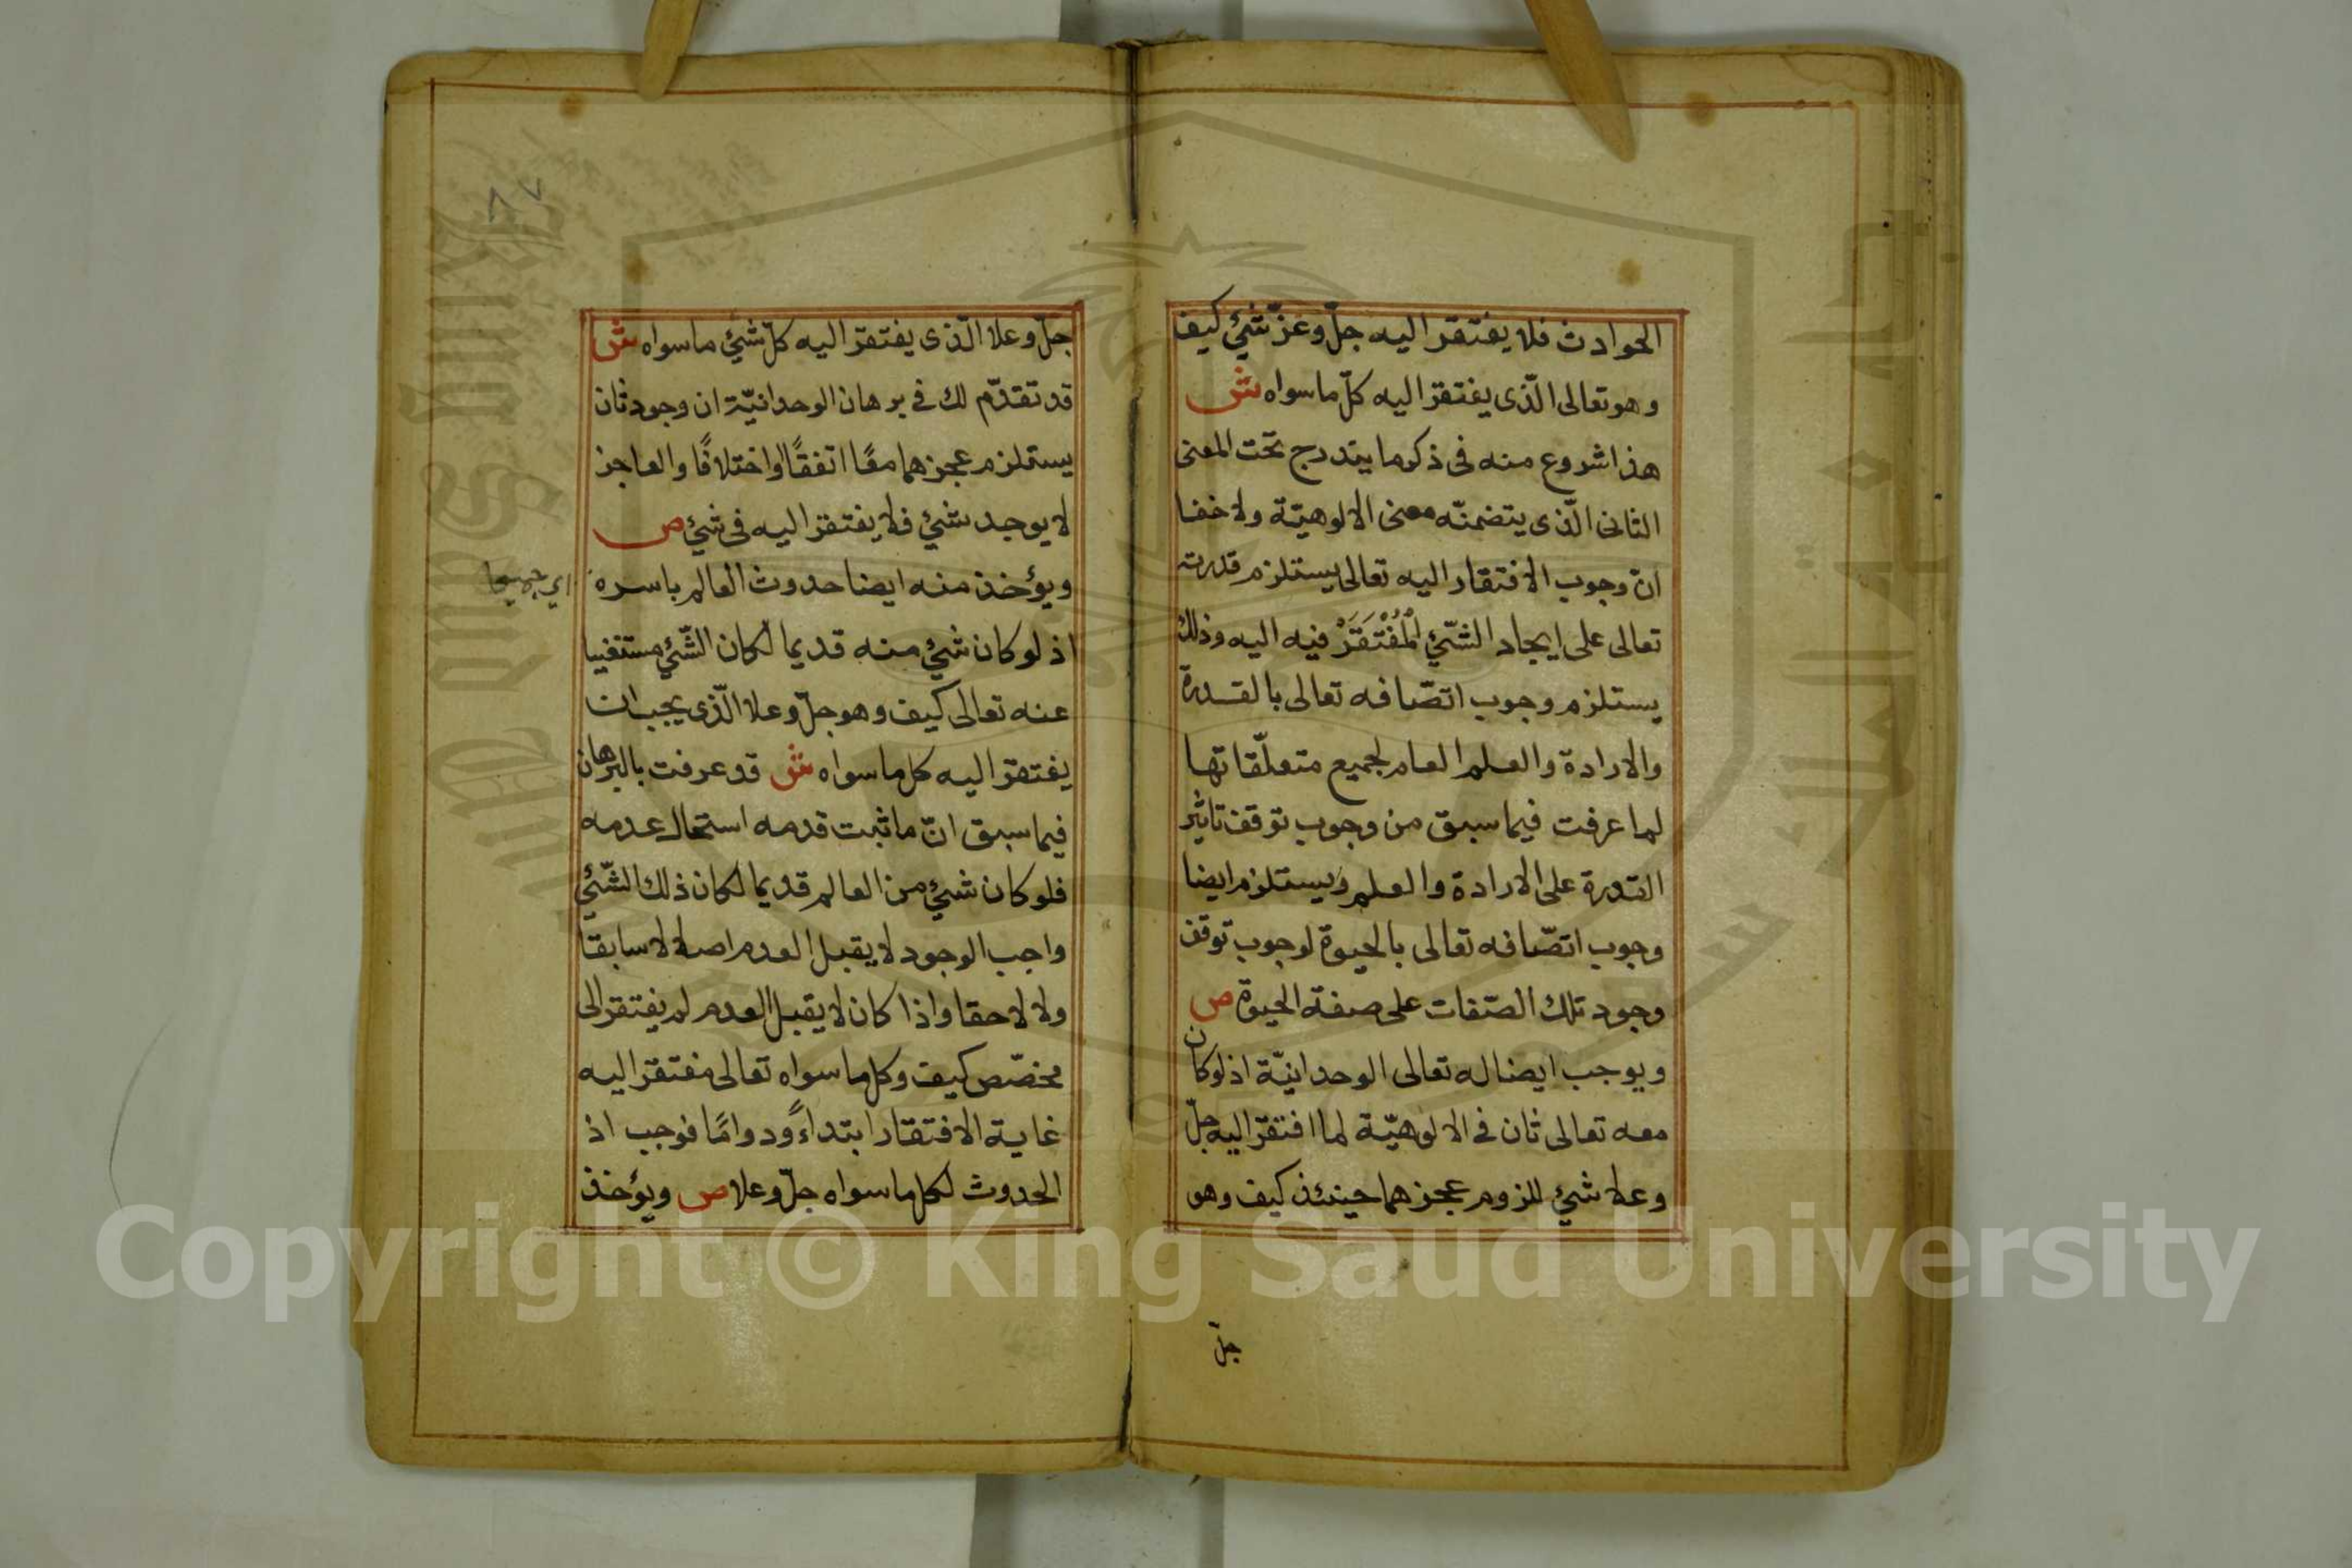 الحوادث فلا يفتقر اليه جلّ وعزّ شئ كيف
وهو تعالى الّذى يفتقر اليه كلّ ما سواه ش
هذا شروع منه فى ذكر ما يندرج تحت المعنى
الثانى الّذى يتضمنّه معنى الالوهيّة ولا خفا
انّ وجوب الافتقار اليه تعالى يستلزم قدرته
تعالى على ايجاد الشّئ الْمُفْتَقَرْ فيه اليه وذلك
يستلزم وجوب اتصّافه تعالى بالقدرة
والارادة والعلم العام لجميع متعلّقاتها
لما عرفت فيما سبق من وجوب توقف تاثير
القدرة على الارادة والعلم ويستلزم ايضا
وجوب اتصّافه تعالى بالحيوة لوجوب توقف
وجود تلك الصّفات على صفة الحيوة ص
ويوجب ايضا له تعالى الوحدانيّة اذ لو كان
معه تعالى ثان فى الالوهيّة لما افتقر اليه جلّ
وعلا شئ للزوم عجزهما حينئذ كيف وهو
جلّ
٨٧
جلّ وعلا الّذى يفتقر اليه كلّ شئ ما سواه ش
قد تقدّم لك فى برهان الوحدانيّة ان وجود ثان
يستلزم عجزهما معًا اتفقًا او اختلافًا والعاجز
لا يوجد شئ فلا يفتقر اليه فى شئ ص
ويؤخذ منه ايضا حدوث العالم باسره
اي جميعا
اذ لو كان شئ منه قديما لكان الشّئ مستغنيا
عنه تعالى كيف وهو جلّ وعلا الّذى يجب ان
يفتقر اليه كل ما سواه ش قد عرفت بالبرهان
فيما سبق انّ ما ثبت قدمه استحال عدمه
فلو كان شئ من العالم قديما لكان ذلك الشّئ
واجب الوجود لا يقبل العدم اصلا لا سابقا
ولا لاحقا واذا كان لا يقبل العدم لم يفتقر الى
مخصّص كيف وكل ما سواه تعالى مفتقر اليه
غاية الافتقار ابتداءً ودوامًا فوجب اذ
الحدوث لكل ما سواه جلّ وعلا ص ويؤخذ
Copyright © King Saud University